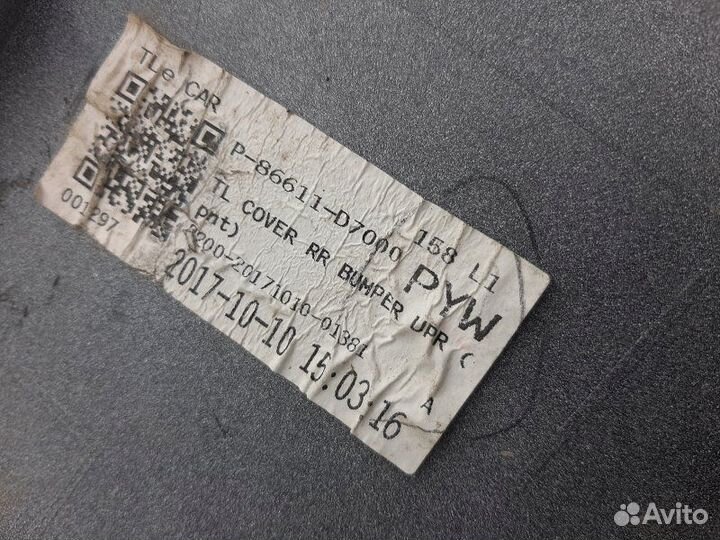 TLe CAR
001297
P-86611-D7000 158 L1
TL COVER RR BUMPER UPR (
pnt)
PYW
8200-20171010-01381
2017-10-10 15:03:16
A
Avito